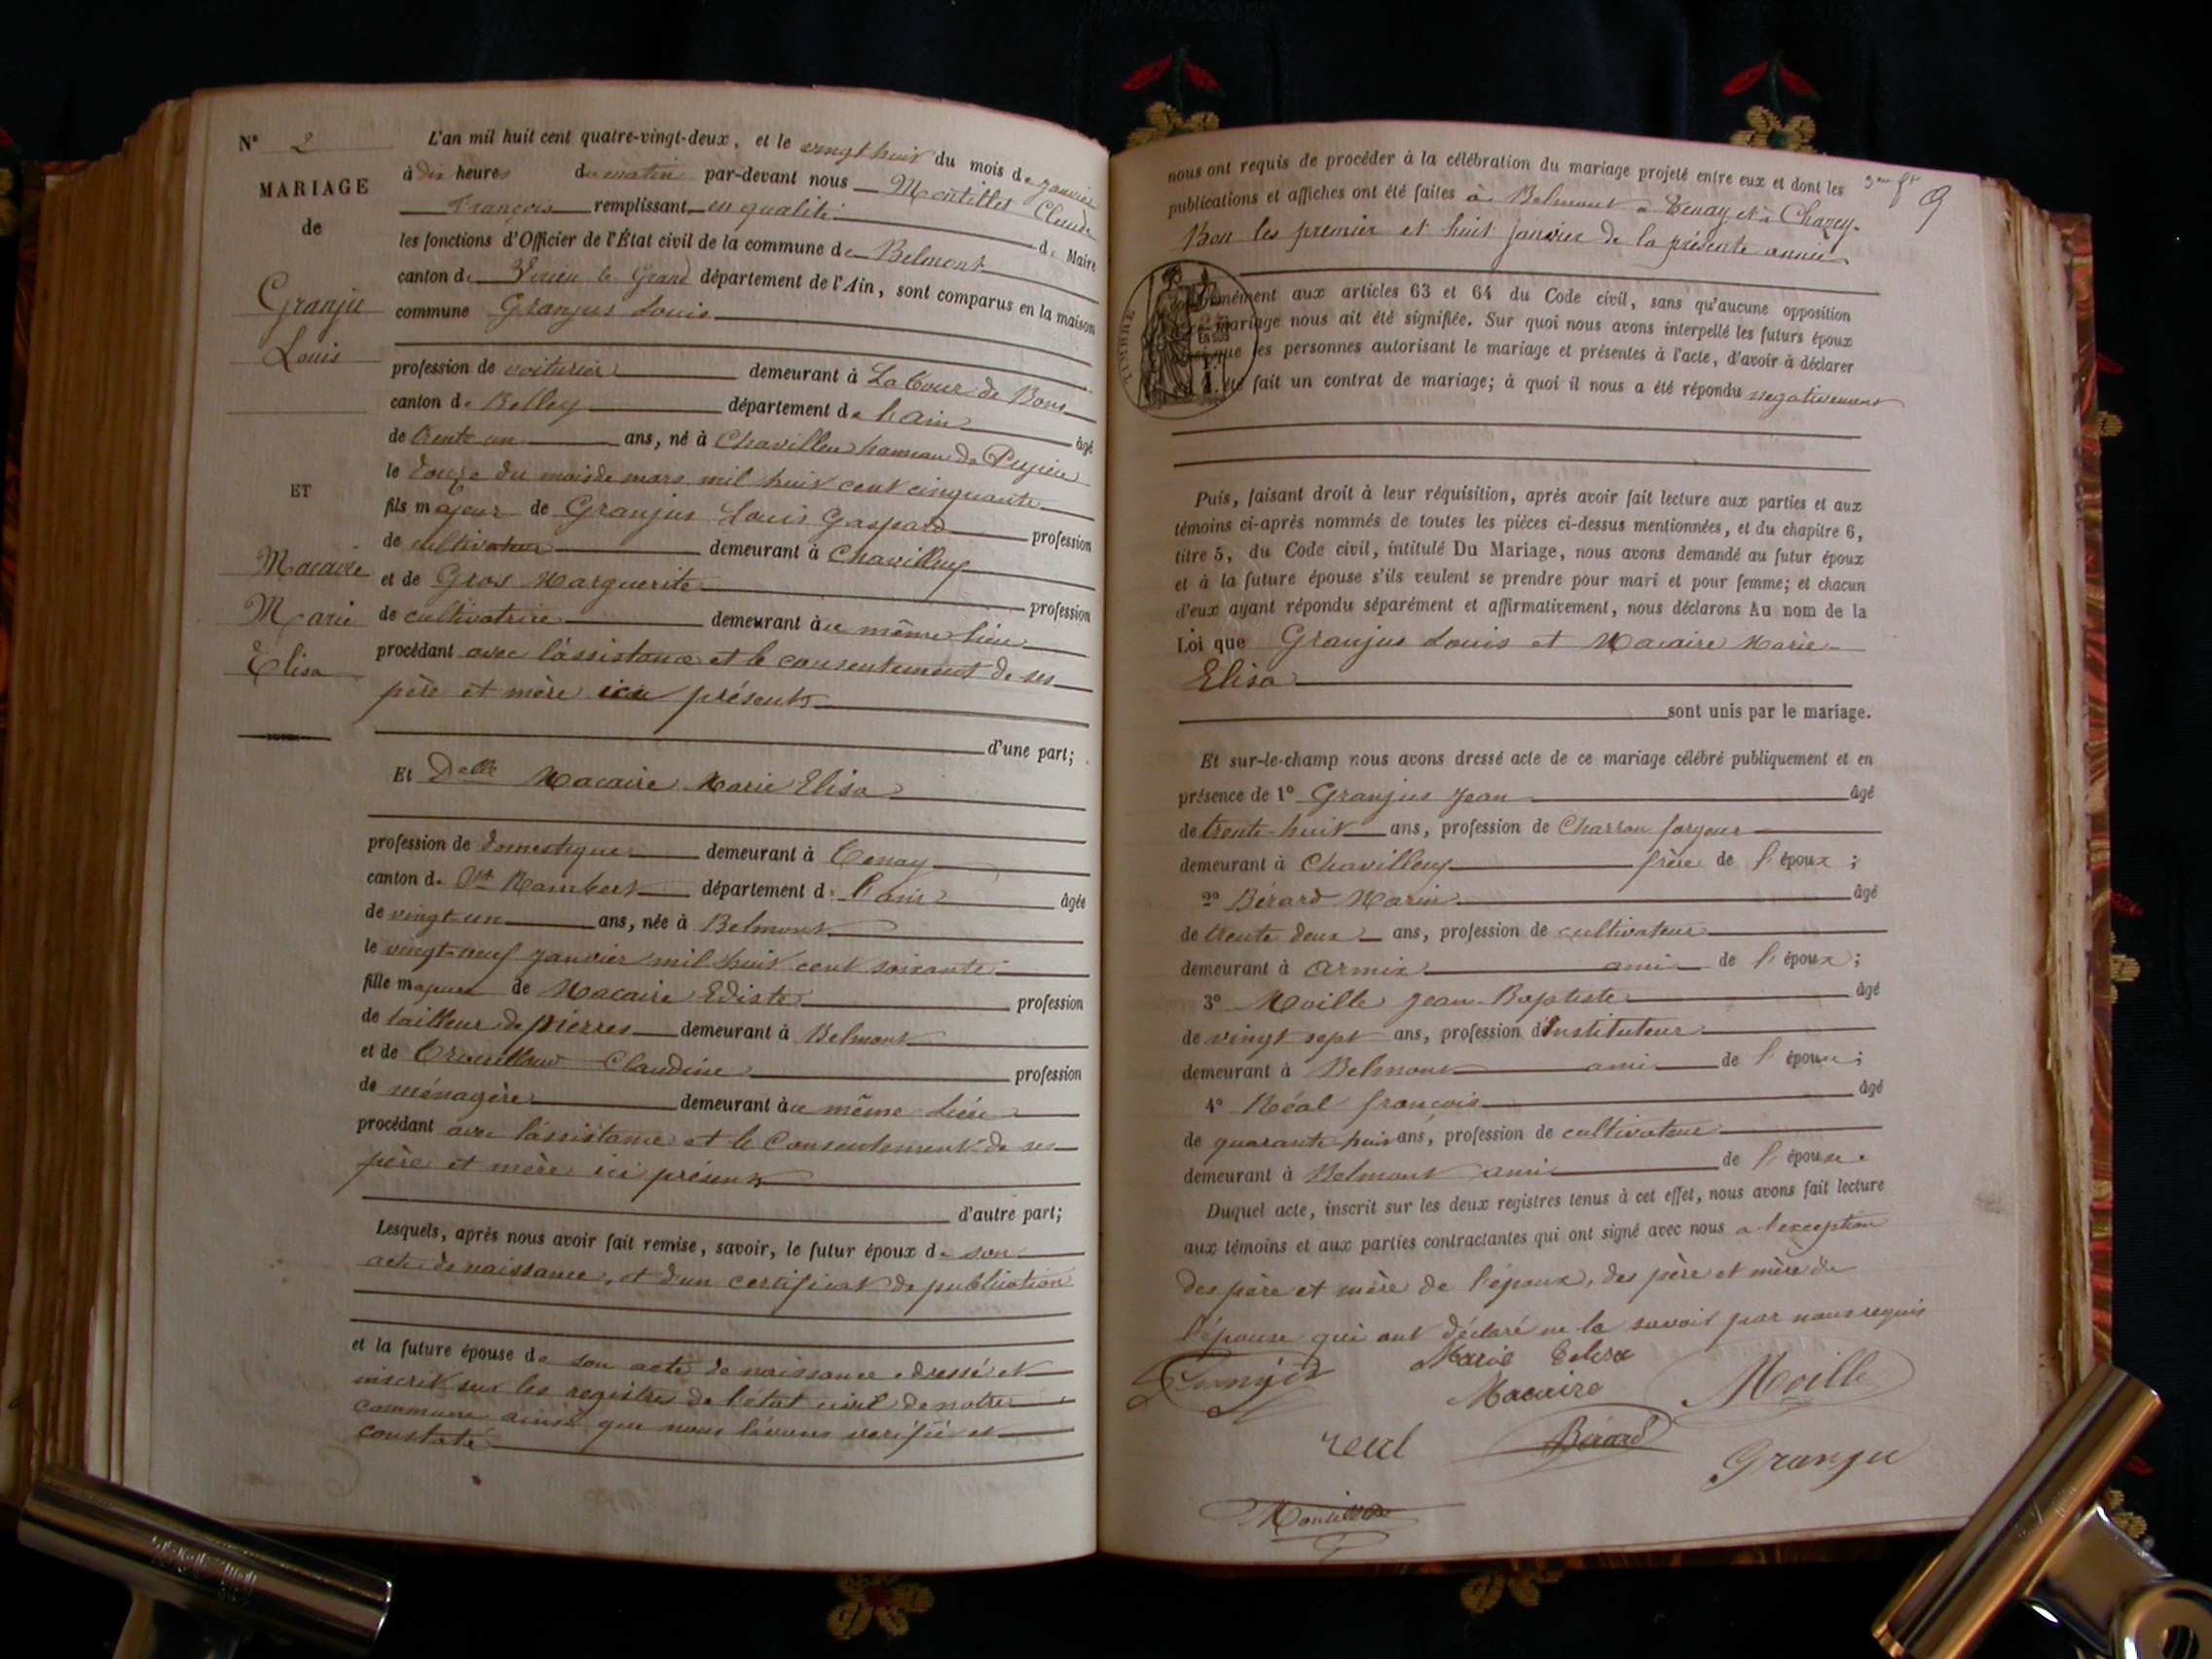 N° 2
MARIAGE
de
Granju
Louis
ET
Macaire
Marie
Elisa
L'an mil huit cent quatre-vingt-deux, et le vingt huit du mois de janvier
à dix heures du matin par-devant nous Montillet Claude
François remplissant en qualité de Maire
les fonctions d'Officier de l'État civil de la commune de Belmont
canton de Virieu le Grand département de l'Ain, sont comparus en la maison
commune Granjus Louis
profession de voiturier demeurant à La Cour de Bons
canton de Belley département de l'ain âgé
de trente un ans, né à Chavilleu hameau de Pugieu
le douze du mois de mars mil huit cent cinquante
fils majeur de Granjus Louis Gaspard profession
de cultivateur demeurant à Chavilleu
et de Gros Marguerite profession
de cultivatrice demeurant à ce même lieu
procédant avec l'assistance et le consentement de ses
père et mère ici présents
d'une part;
Et Delle Macaire Marie Elisa
profession de domestique demeurant à Tenay
canton de St Rambert département de l'ain âgée
de vingt-un ans, née à Belmont
le vingt-neuf janvier mil huit cent soixante
fille majeure de Macaire Ediste profession
de tailleur de pierres demeurant à Belmont
et de Claudine profession
de ménagère demeurant à ce même lieu
procédant avec l'assistance et le Consentement de ses
père et mère ici présents
d'autre part;
Lesquels, après nous avoir fait remise, savoir, le futur époux de son
acte de naissance, et d'un certificat de publication
et la future épouse de son acte de naissance dressé et
inscrit sur les registres de l'état civil de notre
commune ainsi que nous l'avons vérifié et
constaté
nous ont requis de procéder à la célébration du mariage projeté entre eux et dont les
publications et affiches ont été faites à Belmont à Tenay et à Chazey-
Bon les premier et huit janvier de la présente année
9
TIMBRE
EN SUS
conformément aux articles 63 et 64 du Code civil, sans qu'aucune opposition
mariage nous ait été signifiée. Sur quoi nous avons interpellé les futurs époux
que les personnes autorisant le mariage et présentes à l'acte, d'avoir à déclarer
été fait un contrat de mariage; à quoi il nous a été répondu négativement
Puis, faisant droit à leur réquisition, après avoir fait lecture aux parties et aux
témoins ci-après nommés de toutes les pièces ci-dessus mentionnées, et du chapitre 6,
titre 5, du Code civil, intitulé Du Mariage, nous avons demandé au futur époux
et à la future épouse s'ils veulent se prendre pour mari et pour femme; et chacun
d'eux ayant répondu séparément et affirmativement, nous déclarons Au nom de la
Loi que Granjus Louis et Macaire Marie
Elisa
sont unis par le mariage.
Et sur-le-champ nous avons dressé acte de ce mariage célébré publiquement et en
présence de 1° Granjus Jean âgé
de trente-huit ans, profession de Charron forgeur
demeurant à Chavilleu frère de l'époux;
2° Bérard Marin âgé
de trente deux ans, profession de cultivateur
demeurant à Armix ami de l'époux;
3° Moille Jean-Baptiste âgé
de vingt sept ans, profession d'Instituteur
demeurant à Belmont ami de l'épouse;
4° Réal françois âgé
de quarante huit ans, profession de cultivateur
demeurant à Belmont ami de l'épouse.
Duquel acte, inscrit sur les deux registres tenus à cet effet, nous avons fait lecture
aux témoins et aux parties contractantes qui ont signé avec nous a l'exception
des père et mère de l'époux, des père et mère de
l'épouse qui ont déclaré ne le savoir par nous requis
Marie Elisa
Macaire
Moille
real
Bérard
Granju